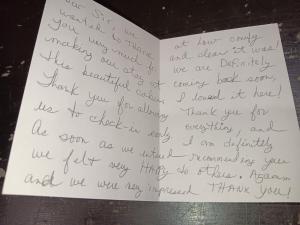 Dear Sir, we
wanted to thank
you very much for
making our stay at
this beautiful cabin
Thank you for allowing
us to check-in early.
As soon as we entered
we felt very HAPPY
and we were very impressed
at how comfy
and clean it was!
we are Definitely
coming back soon,
I loved it here!
Thank you for
everything, and
I am definitely
recommending you
to others. Again
THANK YOU!